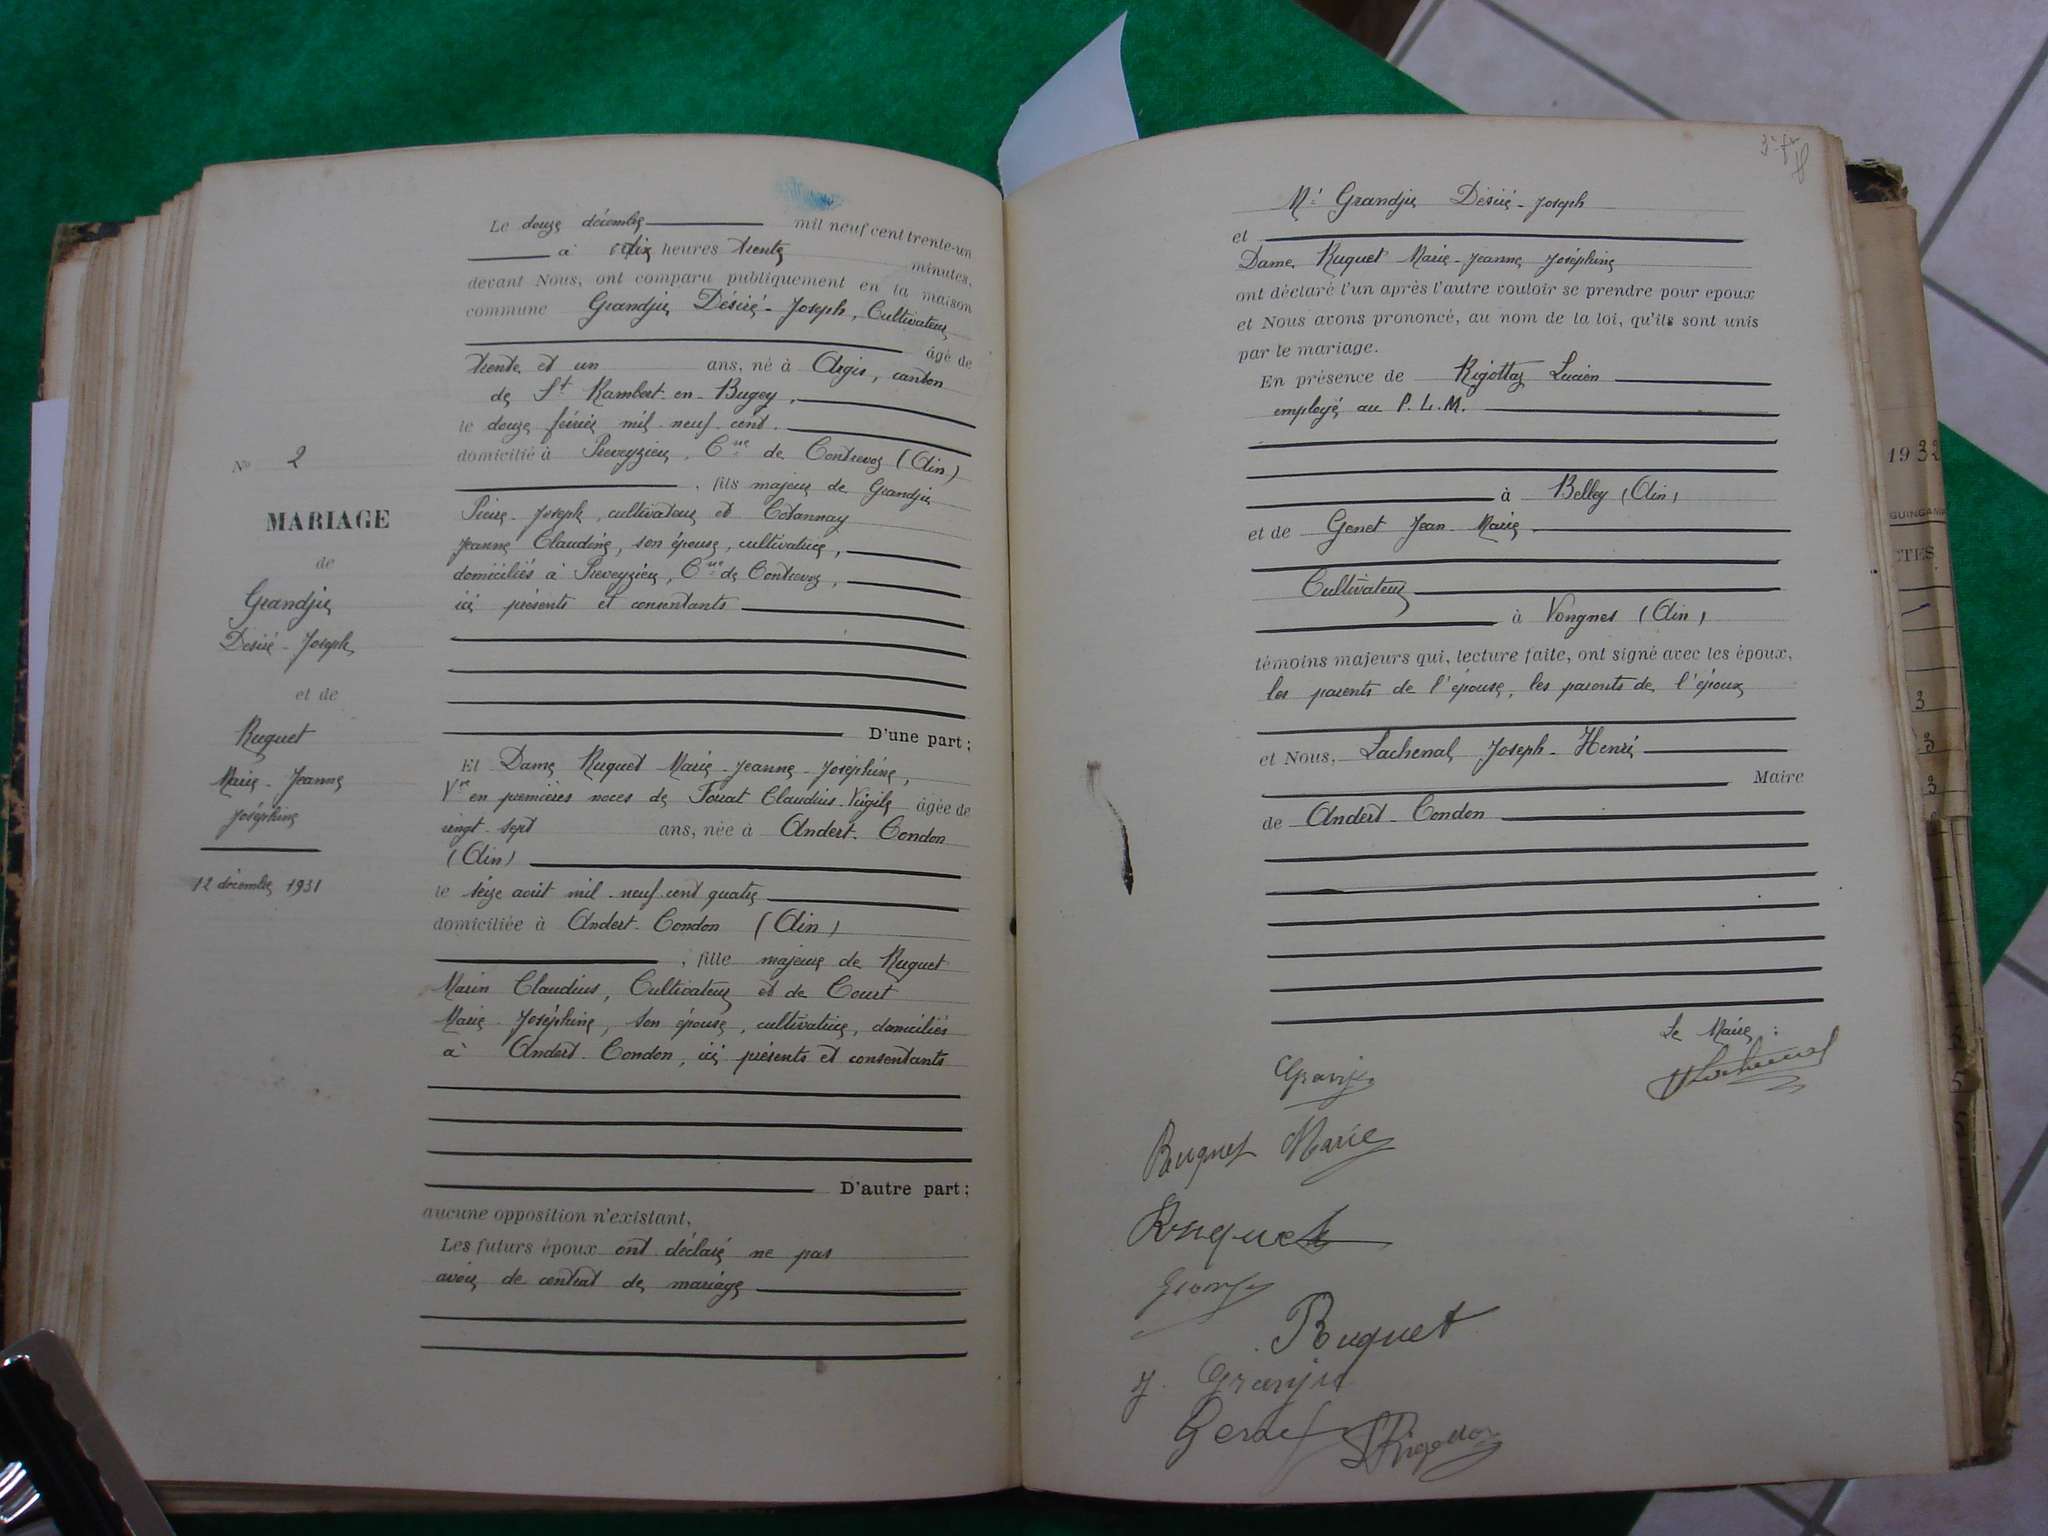 Nº 2
MARIAGE
de
Grandjie
Désiré - Joseph
et de
Ruguet
Marie - Jeanne
Joséphine
12 décembre 1931
Le douze décembre mil neuf cent trente-un
à dix heures trente minutes,
devant Nous, ont comparu publiquement en la maison
commune Grandjie Désiré - Joseph, Cultivateur
âgé de
trente et un ans, né à Argis, canton
de St Rambert-en-Bugey,
le douze février mil neuf cent.
domicilié à Preveyzieu, Cne de Contrevoz (Ain)
, fils majeur de Grandjie
Pierre-Joseph, cultivateur et Cotannay
Jeanne Claudine, son épouse, cultivatrice,
domiciliés à Preveyzieu, Cne de Contrevoz,
ici présents et consentants
D'une part;
Et Dame Ruguet Marie-Jeanne-Joséphine,
Vve en premières noces de Claudius-Virgile âgée de
vingt-sept ans, née à Andert-Condon
(Ain)
le seize août mil neuf cent quatre
domiciliée à Andert-Condon (Ain)
, fille majeure de Ruguet
Marin Claudius, Cultivateur et de Court
Marie Joséphine, son épouse, cultivatrice, domiciliés
à Andert-Condon, ici présents et consentants
D'autre part;
aucune opposition n'existant,
Les futurs époux ont déclaré ne pas
avoir de contrat de mariage
Mr Grandjie Désiré-Joseph
et
Dame Ruguet Marie-Jeanne Joséphine
ont déclaré l'un après l'autre vouloir se prendre pour epoux
et Nous avons prononcé, au nom de la loi, qu'ils sont unis
par le mariage.
En présence de Rigottaz Lucien
employé au P.L.M.
à Belley (Ain)
et de Genet Jean-Marie
Cultivateur
à Vongnes (Ain)
témoins majeurs qui, lecture faite, ont signé avec les époux,
les parents de l'épouse, les parents de l'époux
et Nous, Lachenal Joseph-Henri
Maire
de Andert-Condon
Le Maire :
Lachenal
Ruguet Marie
Ruguet
Ruguet
Genet
Rigottaz
1932
CTES
3
3
3